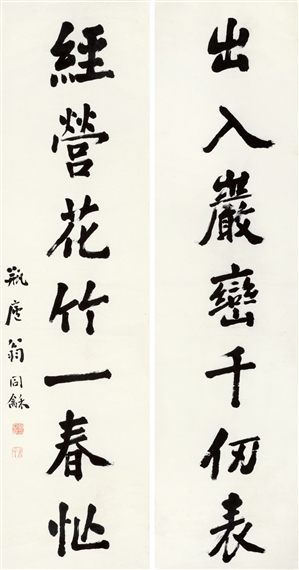 出入巖巒千仞表
經營花竹一春忙
瓶廬翁同龢